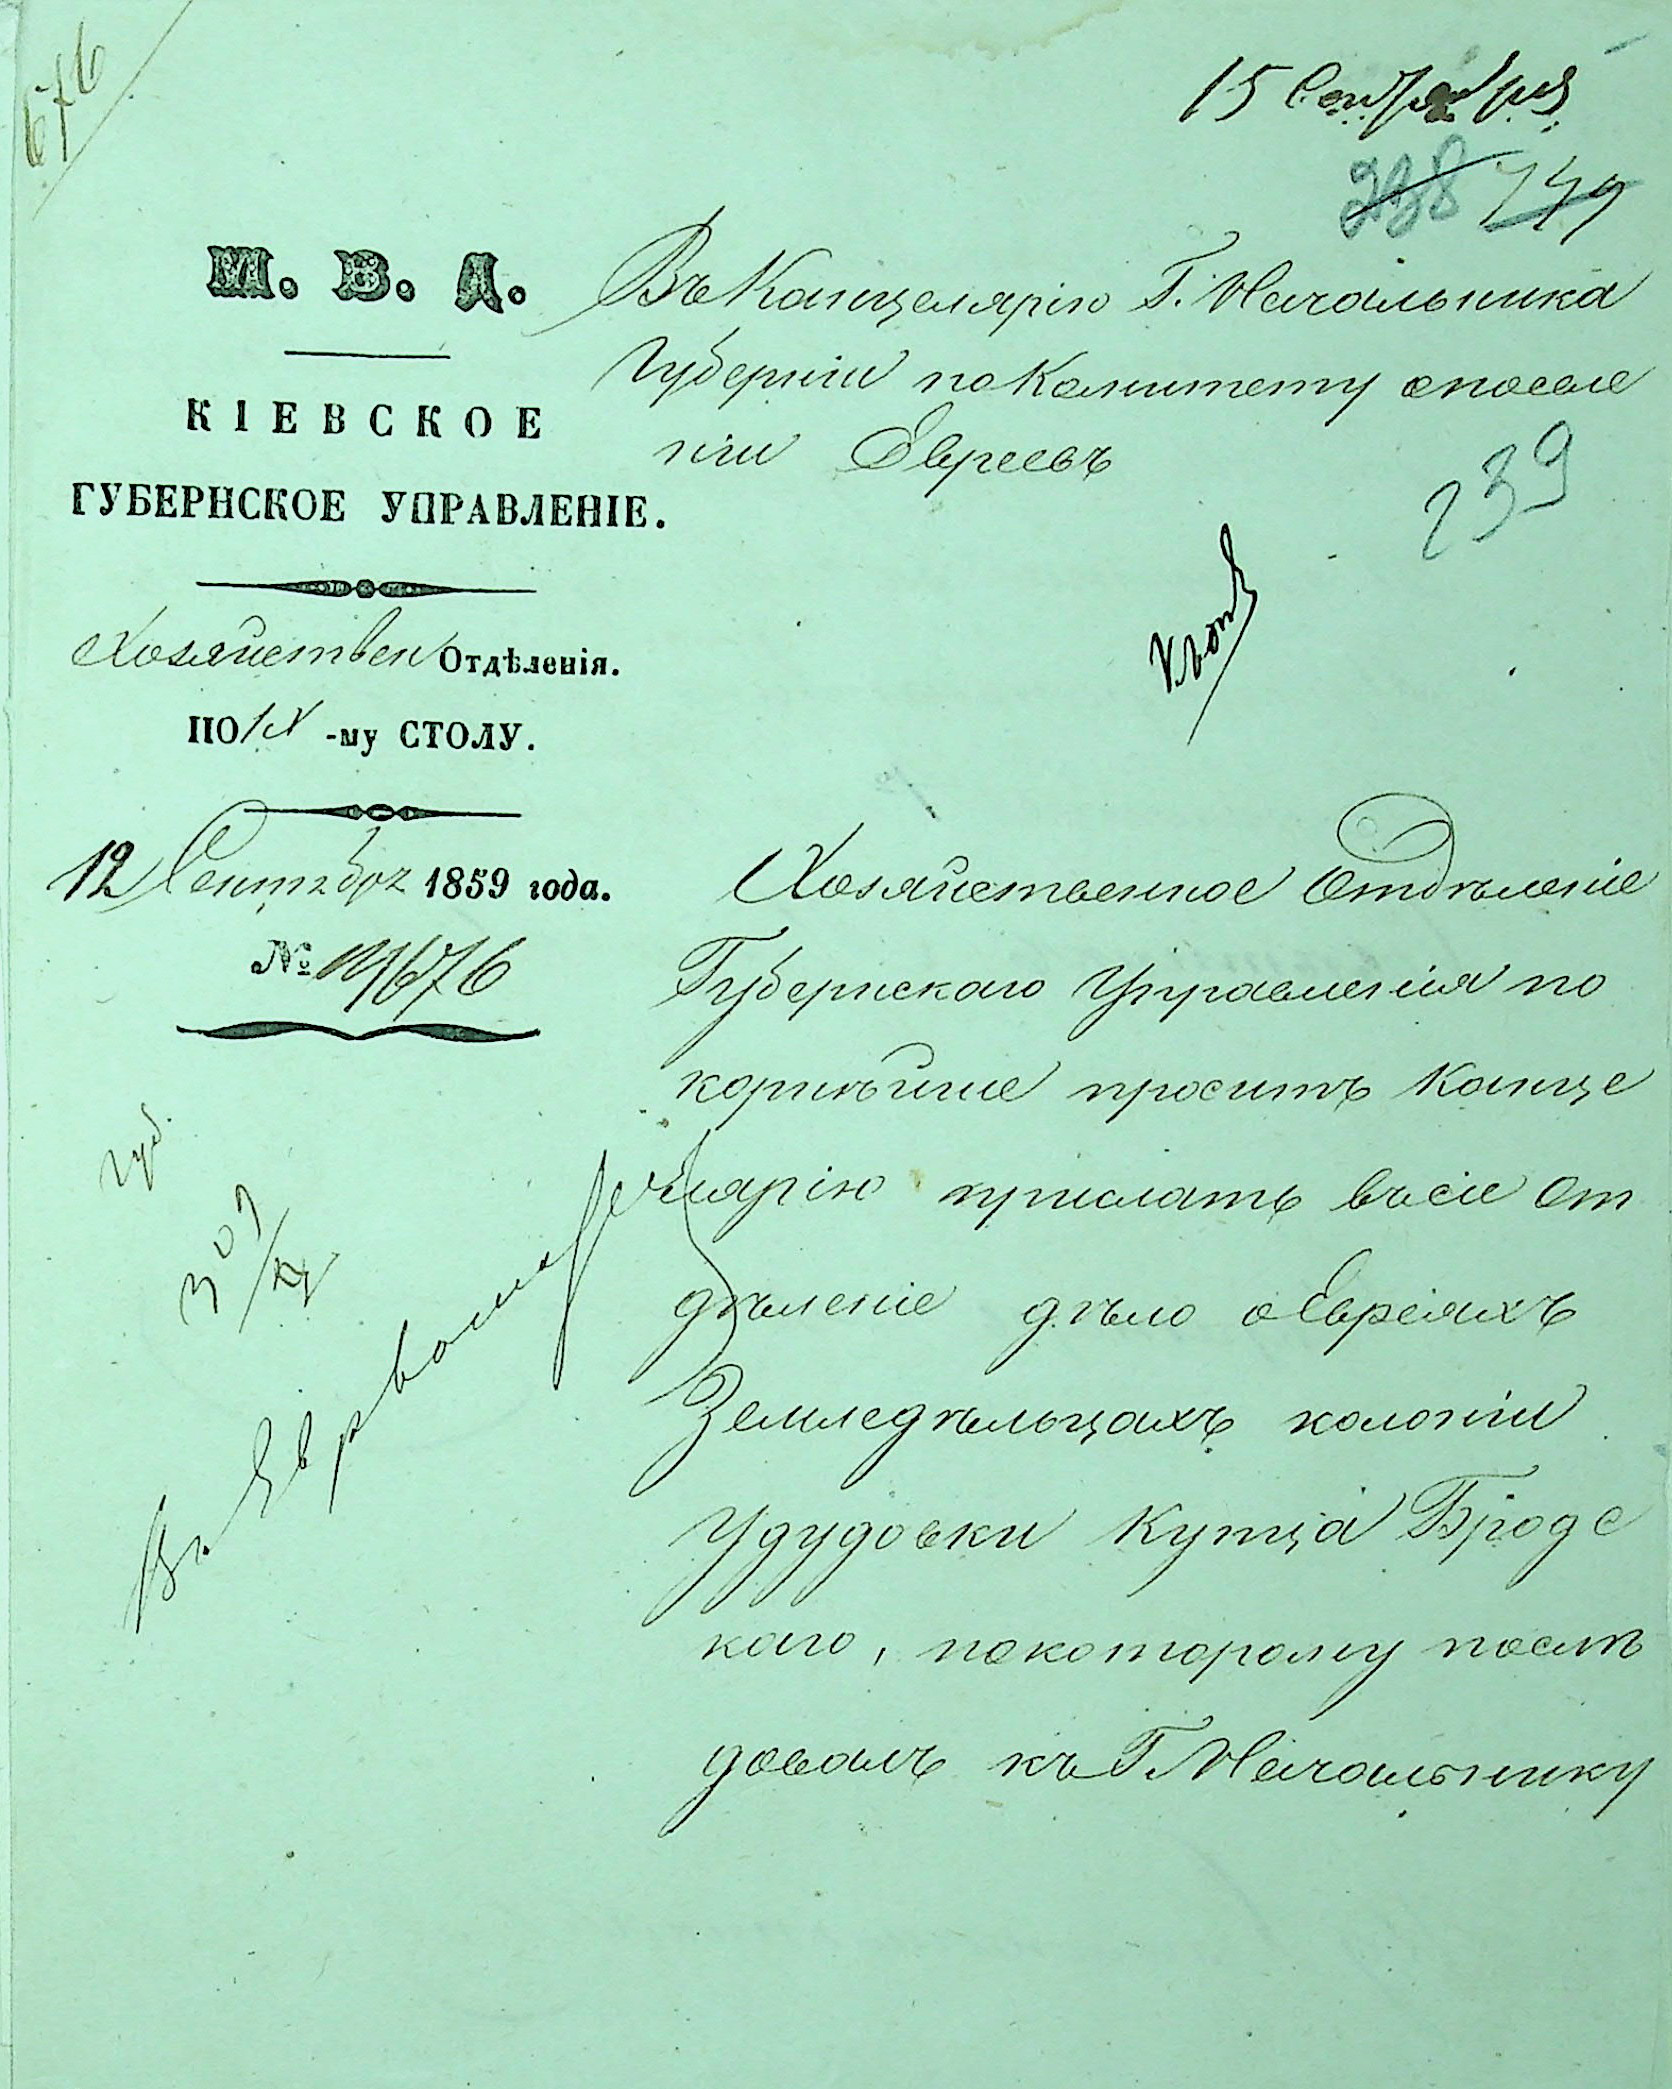 676
15 Сентября
238 749
М. В. Д.
КІЕВСКОЕ
ГУБЕРНСКОЕ УПРАВЛЕНІЕ.
Хозяйствен Отдѣленія.
ПО IV -му СТОЛУ.
12 Сентября 1859 года.
№ 19676
Въ Канцелярію Г. Начальника
Губерніи по Комитету о поселе
ніи Евреевъ
239
Хозяйственное Отдѣленіе
Губернскаго Управленія по
корнѣйше проситъ Канце
лярію прислать въ сіе От
дѣленіе дѣло о Евреяхъ
Земледѣльцахъ колоніи
Удудовки Купца Бродс
каго, по которому послѣ
довалъ къ Г. Начальнику
Губ.